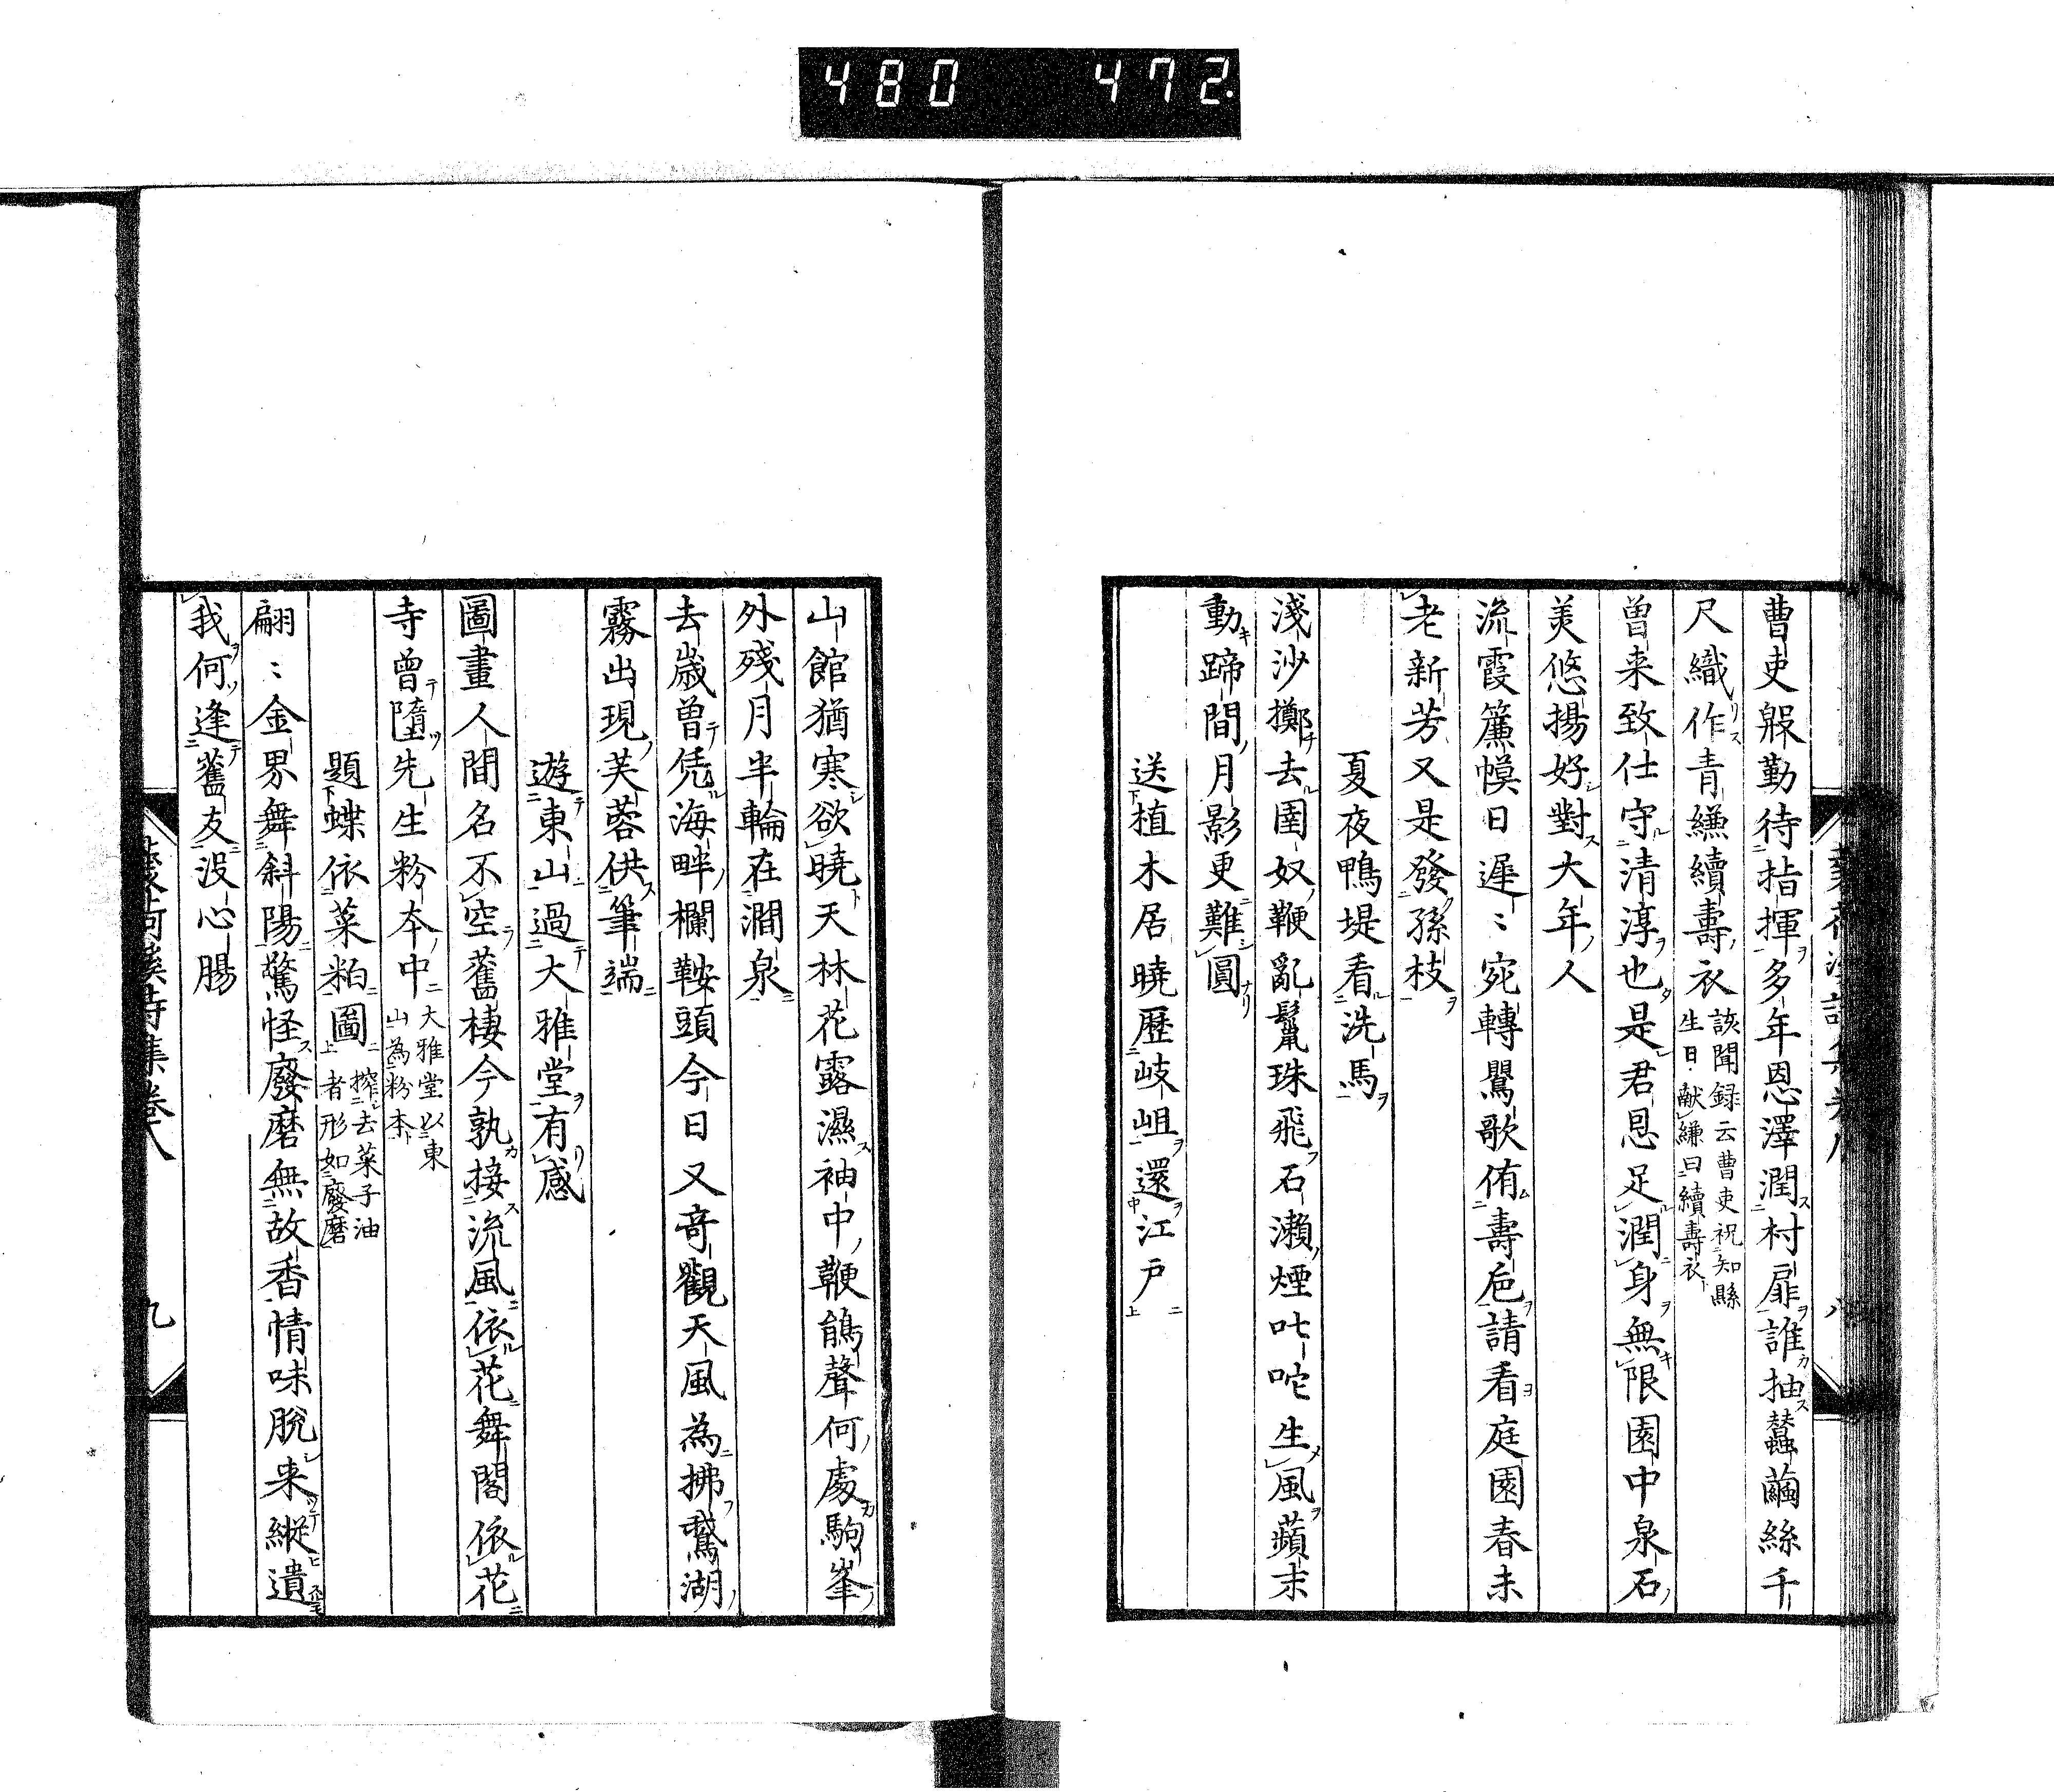 480 472.
曹吏殷勤待指揮多年恩澤潤村扉誰抽蠶繭絲千
尺織作青縑續壽衣該聞録云曹吏祝知縣
生日献縑曰續壽衣
曽来致仕守清淳也是君恩足潤身無限園中泉石
美悠揚好對大年人
流霞簾幙日遲〻宛轉鸎歌侑壽巵請看庭園春未
老新芳又是發孫枝
夏夜鴨堤看洗馬
淺沙擲去圉奴鞭亂鬣珠飛石瀨煙叱咜生風蘋末
動蹄間月影更難圓
送植木居曉歴岐岨還江戸
山館猶寒欲曉天林花露濕袖中鞭鵃聲何處駒峯
外殘月半輪在澗泉
去歳曽凭海畔欄鞍頭今日又竒觀天風為拂鵞湖
霧出現芙蓉供筆端
遊東山過大雅堂有感
圖畫人間名不空舊棲今孰接流風依花舞閣依花
寺曽墮先生粉夲中大雅堂以東
山為粉夲
題蝶依菜粕圖搾去菜子油
者形如廢磨
翩〻金界舞斜陽驚怪廢磨無故香情味脫来縱遺
我何逢舊友没心腸
九